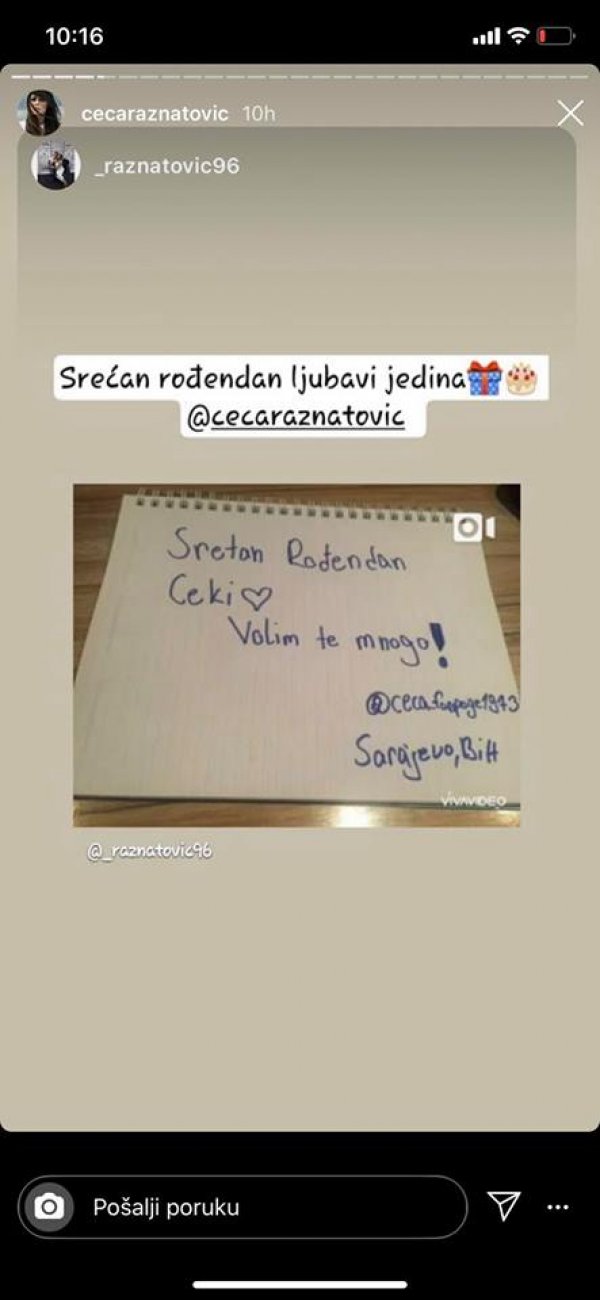 10:16
cecaraznatovic 10h
_raznatovic96
Srećan rođendan ljubavi jedina🎁🎂
@cecaraznatovic
Sretan Rođendan
Ceki♡
Volim te mnogo!
@cecafanpage1973
Sarajevo, BiH
VIVAVIDEO
@_raznatovic96
Pošalji poruku